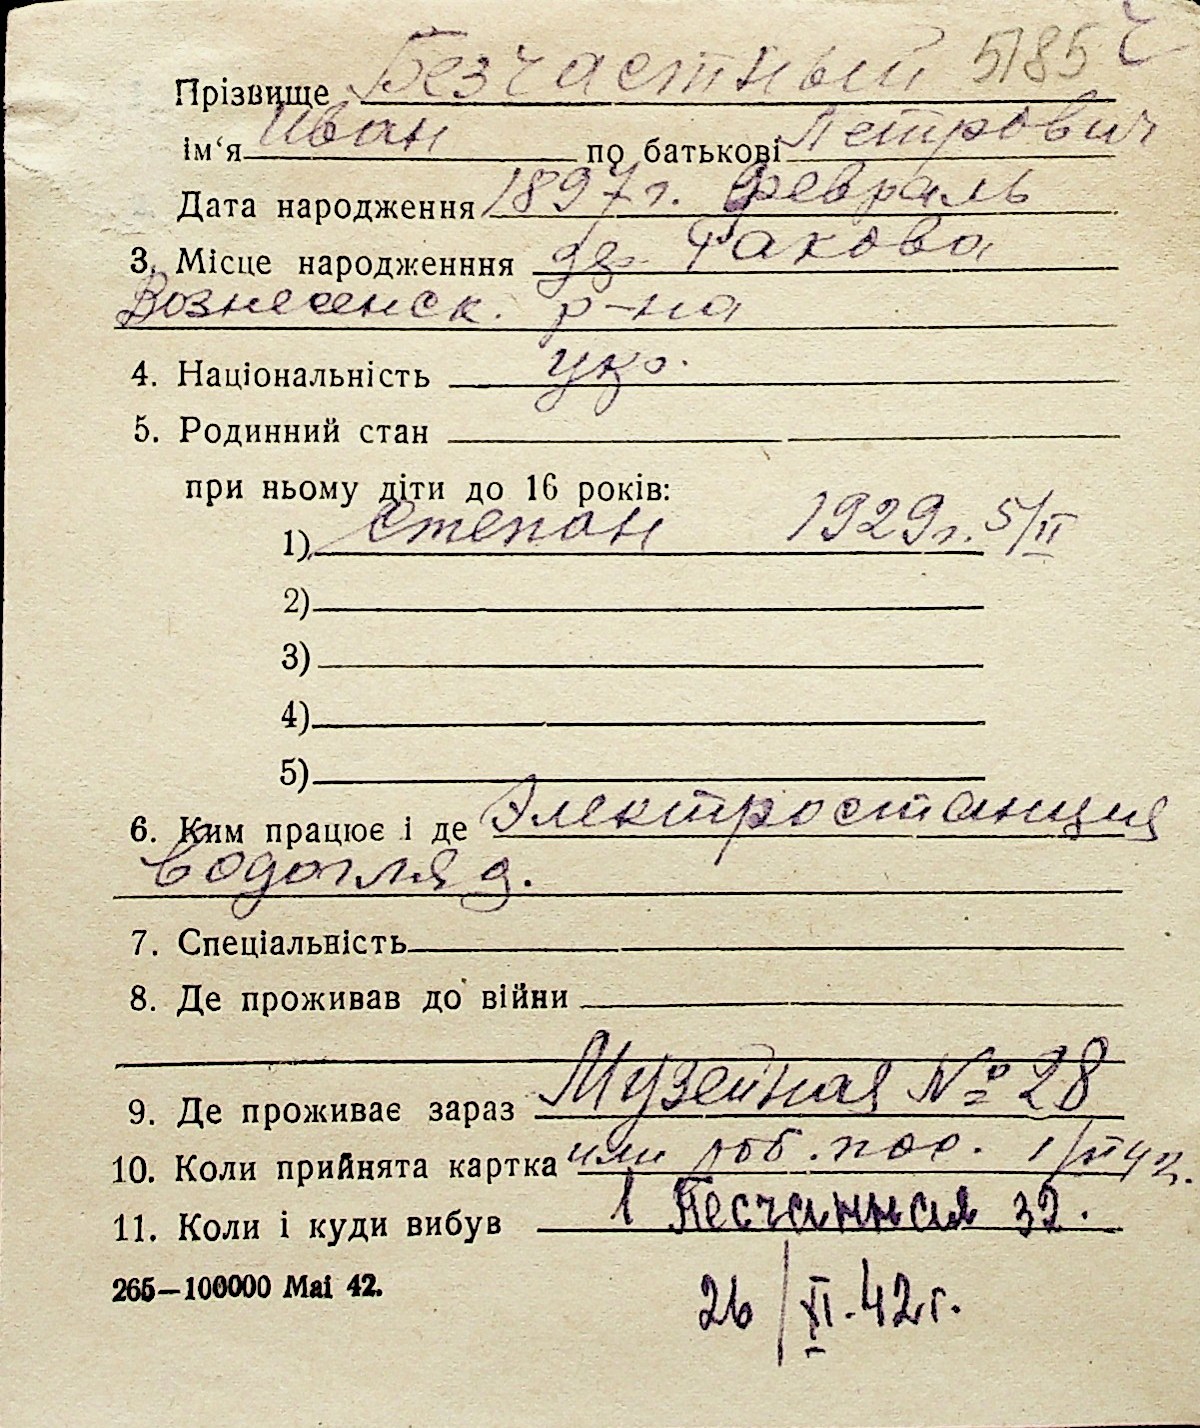 Прізвище Безчастный 5185
ім‘я Иван по батькові Петрович
Дата народження 1897 г. февраль
3. Місце народженння дер. Ракова
Вознесенск. р-на
4. Національність укр.
5. Родинний стан
при ньому діти до 16 років:
1) Степан 1929 г. 5/II
2)
3)
4)
5)
6. Ким працює і де Электростанция
Водогляд.
7. Спеціальність
8. Де проживав до війни
9. Де проживає зараз Музейная № 28
10. Коли прийнята картка или роб. пос.
11. Коли і куди вибув 1 Песчанная 32.
265—100000 Mai 42.
26/XI.42 г.